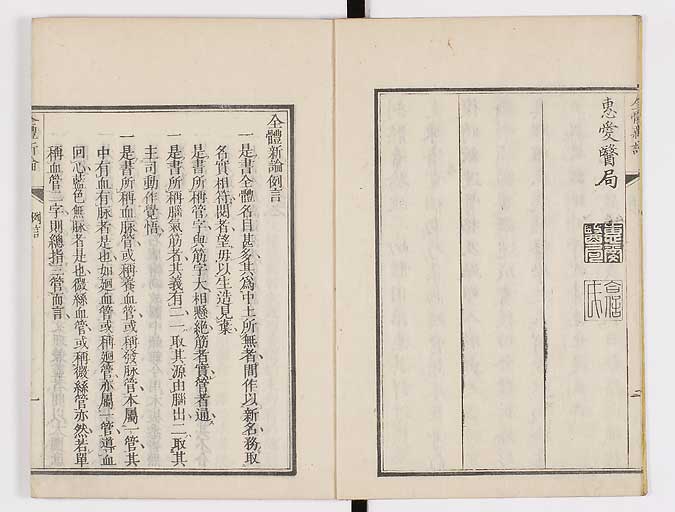 全體新論
惠愛醫局
二
全體新論例言
一是書全體名目甚多其爲中土所無者間作以新名務取
名實相符閱者望毋以生造見棄
一是書所稱管字與筋字大相懸絶筋者實管者通
一是書所稱腦氣筋者其義有二一取其源由腦出二取其
主司動作覺悟
一是書所稱血脉管或稱養血管或稱發脉管本屬一管其
中有血有脉者是也如廻血管或稱廻管亦屬一管導血
回心藍色無脉者是也微絲血管或稱微絲管亦然若單
稱血管二字則總指三管而言
全體新論
例言
一